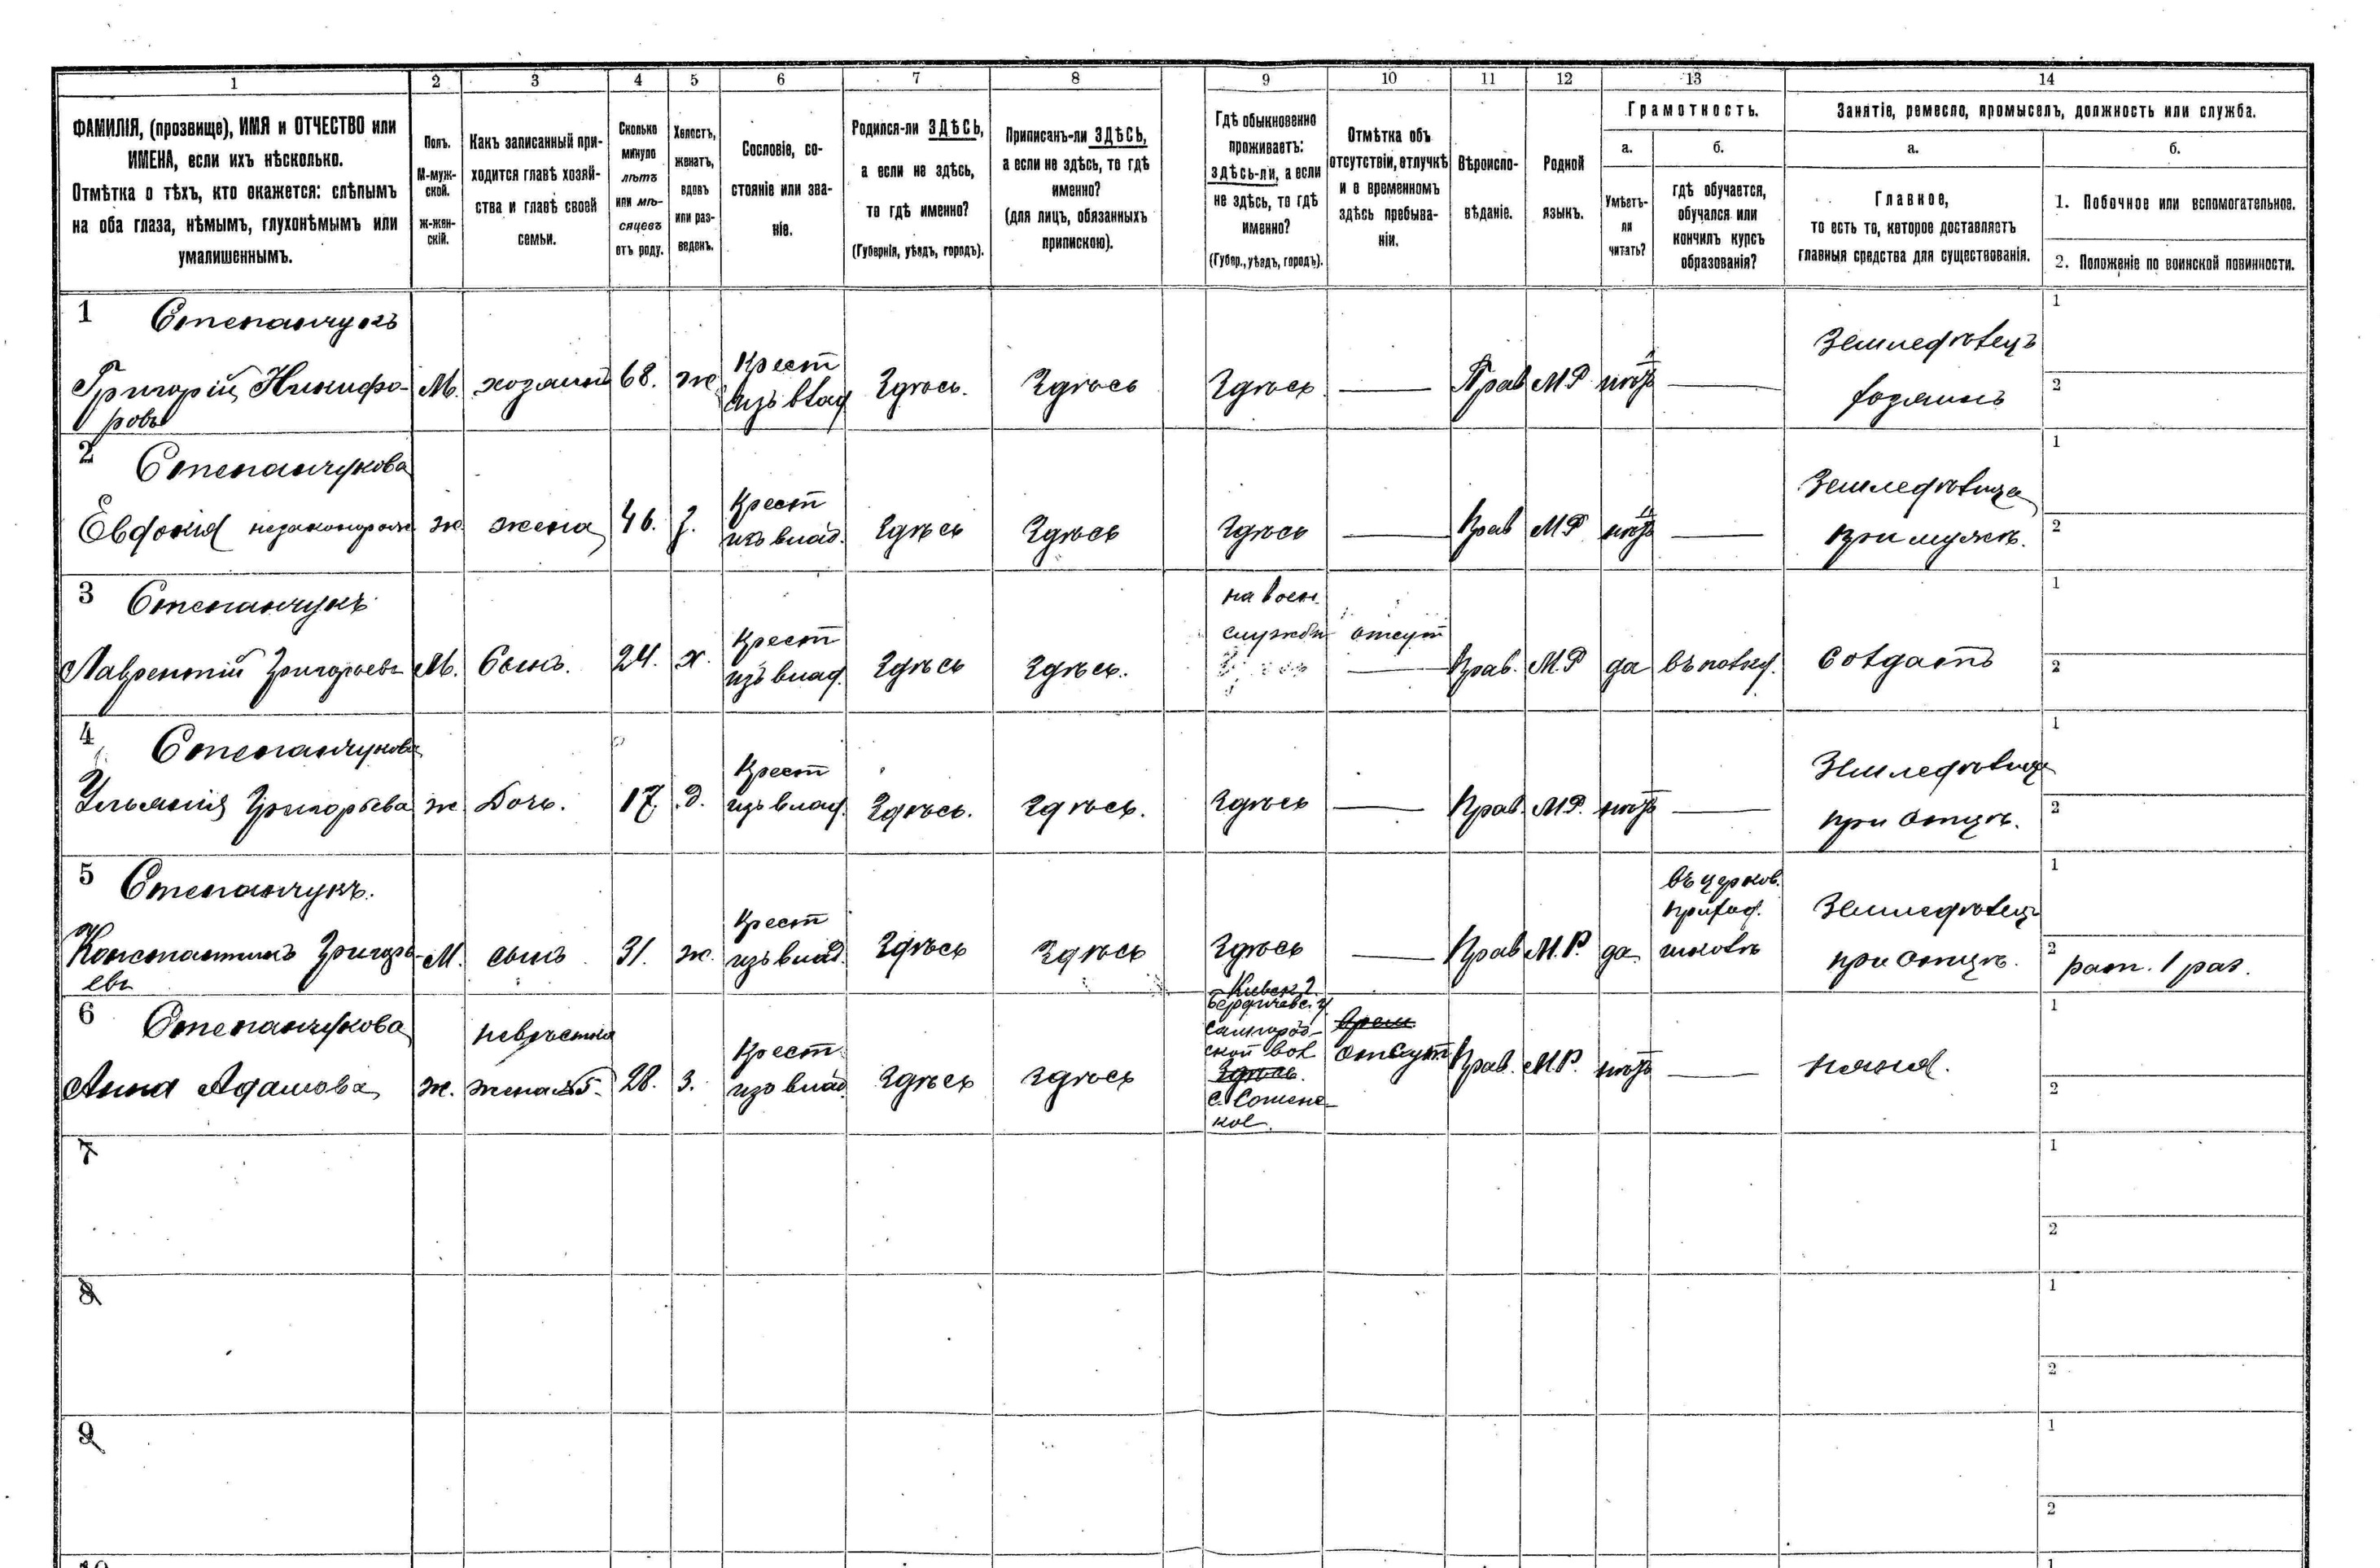 1 2 3 4 5 6 7 8 9 10 11 12 13 14
ФАМИЛІЯ, (прозвище), ИМЯ и ОТЧЕСТВО или
ИМЕНА, если ихъ нѣсколько.
Отмѣтка о тѣхъ, кто окажется: слѣпымъ
на оба глаза, нѣмымъ, глухонѣмымъ или
умалишеннымъ.
Полъ.
М-муж-
ской.
ж-жен-
скій.
Какъ записанный при-
ходится главѣ хозяй-
ства и главѣ своей
семьи.
Сколько
минуло
лѣтъ
или мѣ-
сяцевъ
отъ роду.
Холостъ,
женатъ,
вдовъ
или раз-
веденъ.
Сословіе, со-
стояніе или зва-
ніе.
Родился-ли ЗДѢСЬ,
а если не здѣсь,
то гдѣ именно?
(Губернія, уѣздъ, городъ).
Приписанъ-ли ЗДѢСЬ,
а если не здѣсь, то гдѣ
именно?
(для лицъ, обязанныхъ
припискою).
Гдѣ обыкновенно
проживаетъ:
здѣсь-ли, а если
не здѣсь, то гдѣ
именно?
(Губер., уѣздъ, городъ).
Отмѣтка объ
отсутствіи, отлучкѣ
и о временномъ
здѣсь пребыва-
ніи.
Вѣроиспо-
вѣданіе.
Родной
языкъ.
Грамотность.
а.
Умѣетъ-
ли
читать?
б.
гдѣ обучается,
обучался или
кончилъ курсъ
образованія?
Занятіе, ремесло, промыселъ, должность или служба.
а.
Главное,
то есть то, которое доставляетъ
главныя средства для существованія.
б.
1. Побочное или вспомогательное.
2. Положеніе по воинской повинности.
1 Степанчукъ
Григорій Никифо-
ровъ
М.
хозяинъ
68.
ж
Крест
изъ влад
Здѣсь.
Здѣсь
Здѣсь
Прав
М Р
нѣтъ
Земледѣлецъ
хозяинъ
1
2
2 Степанчукова
Евдокія незаконорож
ж
жена
46.
з.
Крест
изъ влад.
Здѣсь
Здѣсь
Здѣсь
Прав
М Р
нѣтъ
Земледѣлица
при мужѣ.
1
2
3 Степанчукъ
Лаврентій Григорьевъ
М.
Сынъ.
24.
х.
Крест
изъ влад.
Здѣсь
Здѣсь.
на воен.
службѣ
отсут
Прав.
М.Р
да
въ полку.
Солдатъ
1
2
4 Степанчукова
Ульянія Григорьева
ж
Дочь.
17.
д.
Крест
изъ влад.
Здѣсь.
Здѣсь.
Здѣсь
Прав.
М Р.
нѣтъ
Земледѣлица
при отцѣ.
1
2
5 Степанчукъ.
Константинъ Григорь-
евъ
М.
сынъ
31.
ж.
Крест
изъ влад.
Здѣсь
Здѣсь
Здѣсь
Прав
М.Р.
да
въ церков.
приход.
школѣ
Земледѣлецъ
при отцѣ.
1
2 рат. 1 раз.
6 Степанчукова
Анна Адамова
ж.
невѣстка
жена №5.
28.
з.
Крест.
изъ влад.
Здѣсь
Здѣсь
Киевск. г.
Бердичевс. у.
Самгород-
ской вол
Здѣсь.
врем
отсут
Прав.
М.Р.
нѣтъ
няня.
1
2
7
1
2
8
1
2
9
1
2
10
1